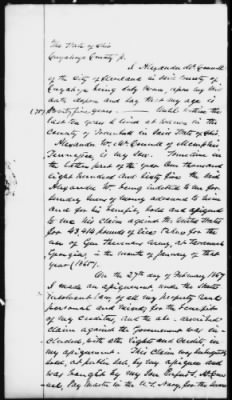 The State of Ohio
Cuyahoga County ss.
I Alexander McConnell
of the City of Cleveland in said County of
Cuyahoga being duly sworn, upon my oath
depose and say that my age is
(75) seventy five years — Until within the
last ten years I lived at Warren in the
County of Trumbull in said State of Ohio.
Alexander W. McConnell of Memphis
Tennessee, is my son. Sometime in
the latter part of the year One thousand
eight hundred and sixty five the said
Alexander W. being indebted to me for
sundry sums of money advanced to him
and for his benefit, sold and assigned
to me his claim against the United States
for 43,414 pounds of rice taken for the
use of Gen Shermans Army, at Savannah
Georgia, in the month of January of that
year (1865).
On the 27th day of February 1867
I made an assignment, under the State
Insolvent Law, of all my property real
personal and mixed, for the benefit
of my creditors, and the above described
claim against the Government was in-
cluded, with other rights and credits, in
my assignment. This claim was subsequently
sold, at public sale, by my assignee and
was bought by my son
Pay Master in the U.S. Navy, for the sum